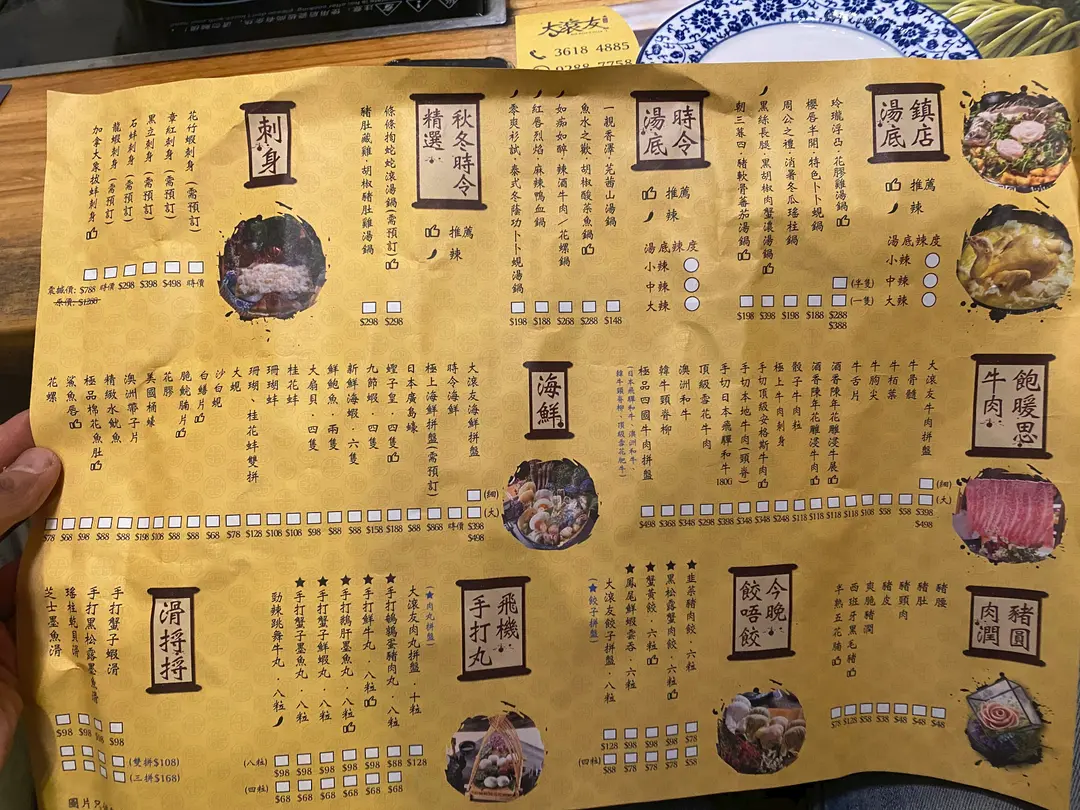 大滾友
3618 4885
9288 7758
鎮店
湯底
推薦
辣
湯底辣度
小辣
中辣
大辣
玲瓏浮凸．花膠雞湯鍋
(半隻) $288
(一隻) $388
櫻唇半開．特色卜卜蜆鍋
$188
周公之禮．消暑冬瓜瑤柱鍋
$198
黑絲長腿．黑胡椒肉蟹濃湯鍋
$398
朝三暮四．豬軟骨蕃茄湯鍋
$198
時令
湯底
推薦
辣
湯底辣度
小辣
中辣
大辣
一親香澤．芫茜山湯鍋
$148
魚水之歡．胡椒酸菜魚鍋
$288
如痴如醉．辣酒牛肉／花螺鍋
$268
紅唇烈焰．麻辣鴨血鍋
$188
零爽衫試．泰式冬蔭功卜卜蜆湯鍋
$198
秋冬時令
精選
推薦
辣
條條拘蛇蛇滾湯鍋(需預訂)
$298
豬肚藏雞．胡椒豬肚雞湯鍋
$298
刺身
花竹蝦刺身 (需預訂)
時價
章紅刺身 (需預訂)
$498
黑立刺身 (需預訂)
$398
石蚌刺身
$298
龍蝦刺身 (需預訂)
時價
加拿大象拔蚌刺身
震撼價: $788
原價: $1268
飽暖思
牛肉
大滾友牛肉拼盤
(細) $398
(大) $498
牛骨髓
$58
牛栢葉
$58
牛胸尖
$108
牛舌片
$118
酒香陳年花雕浸牛展
$118
酒香陳年花雕浸牛肉
$118
骰子牛肉粒
$118
極上牛肉刺身
$248
手切頂級安格斯牛肉
$348
手切本地牛肉(頸脊)
$348
手切日本飛驒和牛180G
$398
頂級雪花牛肉
$298
澳洲和牛
$348
韓牛頸脊柳
$368
極品四國牛肉拼盤
$498
(日本飛驒和牛、澳洲和牛、
韓牛頸脊柳、頂級雪花肥牛)
海鮮
大滾友海鮮拼盤
(細) $398
(大) $498
時令海鮮
時價
極上海鮮拼盤(需預訂)
$868
日本廣島蠔
$88
蟶子皇．兩隻
$188
九節蝦．四隻
$158
新鮮海蝦．六隻
$88
鮮鮑魚．兩隻
$88
大扇貝．四隻
$98
桂花蚌
$108
珊瑚蚌
$108
珊瑚、桂花蚌雙拼
$128
大蜆
$78
沙白蜆
$68
白鱔片
$88
脆鯇腩片
$88
花膠
$108
美國桶蠔
$198
澳洲帶子片
$88
精緻水魷魚
$88
極品棉花魚肚
$98
鯊魚唇
$68
花螺
$78
豬圓
肉潤
豬腰
$48
豬肚
$48
豬頸肉
$48
豬皮
$38
爽脆豬潤
$58
西班牙黑毛豬
$128
半熟五花腩
$78
今晚
餃唔餃
★韭菜豬肉餃．六粒
$78
$58
★黑松露蟹肉餃．六粒
$98
$78
★蟹黃餃．六粒
$98
$78
★鳳尾鮮蝦雲吞．六粒
$98
$78
大滾友餃子拼盤．八粒
$128
(四粒) $88
(★餃子拼盤)
飛機
手打丸
(★肉丸拼盤)
大滾友肉丸拼盤．十粒
$128
★手打鵪鶉蛋豬肉丸．八粒
$88
$68
★手打鮮牛丸．八粒
$98
$68
★鵝肝墨魚丸．八粒
$98
$68
★手打鮮蝦丸．八粒
$98
$68
★手打蟹子墨魚丸．八粒
$98
$68
勁辣跳舞牛丸．八粒
(八粒) $98
(四粒) $68
滑捋捋
手打蟹子蝦滑
$98
手打黑松露墨魚滑
$98
瑤柱乾貝滑
$98
芝士墨魚滑
$98
(雙拼$108)
(三拼$168)
圖片